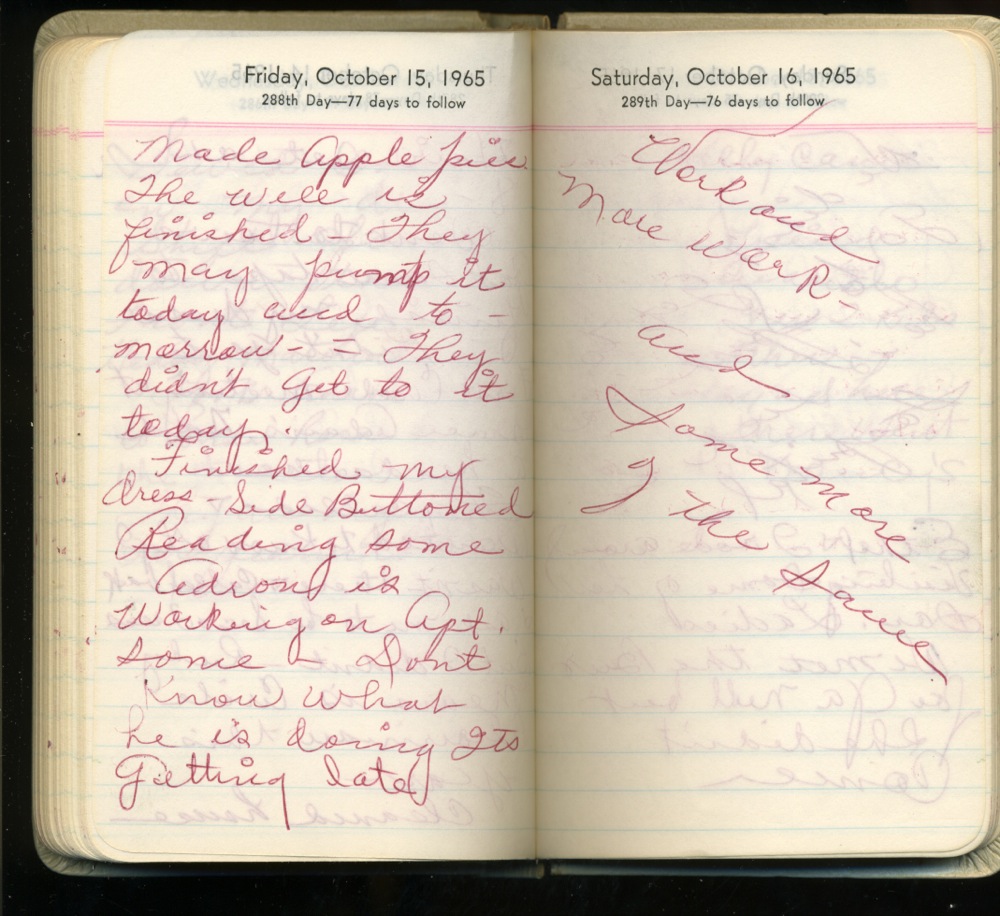 Friday, October 15, 1965
288th Day—77 days to follow
Made Apple pies
The well is
finished - They
may pump it
today and to -
morrow - = They
didn't Get to it
today.
Finished my
dress - Side Buttoned
Reading some
Adron is
Working on Apt.
some - Dont
Know what
he is doing Its
Getting late
Saturday, October 16, 1965
289th Day—76 days to follow
Work and
More work -
and
Some More
of the Same